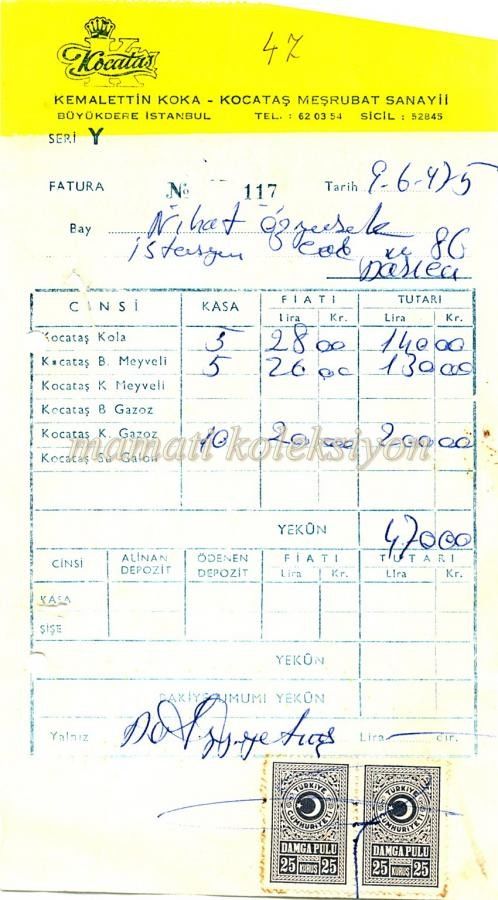 Kocataş
47
KEMALETTİN KOKA - KOCATAŞ MEŞRUBAT SANAYİİ
BÜYÜKDERE İSTANBUL TEL. : 62 03 54 SİCİL : 52845
SERİ Y
FATURA № 117 Tarih 9-6-975
Bay Nihat
86
CİNSİ KASA FİATI TUTARI
Lira Kr. Lira Kr.
Kocataş Kola 5 28 00 140 00
Kocataş B. Meyveli 5 26 00 130 00
Kocataş K Meyveli
Kocataş B Gazoz
Kocataş K. Gazoz 10 20 00 200 00
mamati koleksiyon
Kocataş Su Galon
YEKÛN 470 00
CİNSİ ALINAN DEPOZİT ÖDENEN DEPOZİT FİATI TUTARI
Lira Kr. Lira Kr.
KASA
ŞİŞE
YEKÛN
BAKİYE UMUMİ YEKÛN
Yalnız Lira dir.
TÜRKİYE CUMHURİYETİ TÜRKİYE CUMHURİYETİ
DAMGA PULU DAMGA PULU
25 KURUŞ 25 25 KURUŞ 25